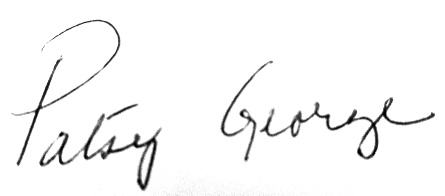 Patsy George